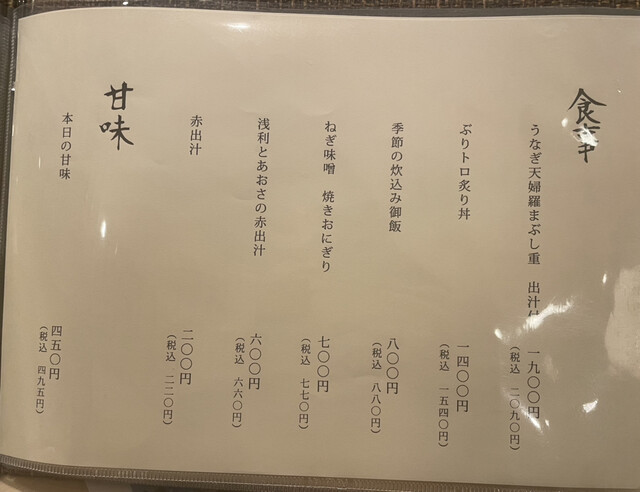 食事
うなぎ天婦羅まぶし重　出汁付
一九〇〇円
（税込　二〇九〇円）
ぶりトロ炙り丼
一四〇〇円
（税込　一五四〇円）
季節の炊込み御飯
八〇〇円
（税込　八八〇円）
ねぎ味噌　焼きおにぎり
七〇〇円
（税込　七七〇円）
浅利とあおさの赤出汁
六〇〇円
（税込　六六〇円）
赤出汁
二〇〇円
（税込　二二〇円）
甘味
本日の甘味
四五〇円
（税込　四九五円）